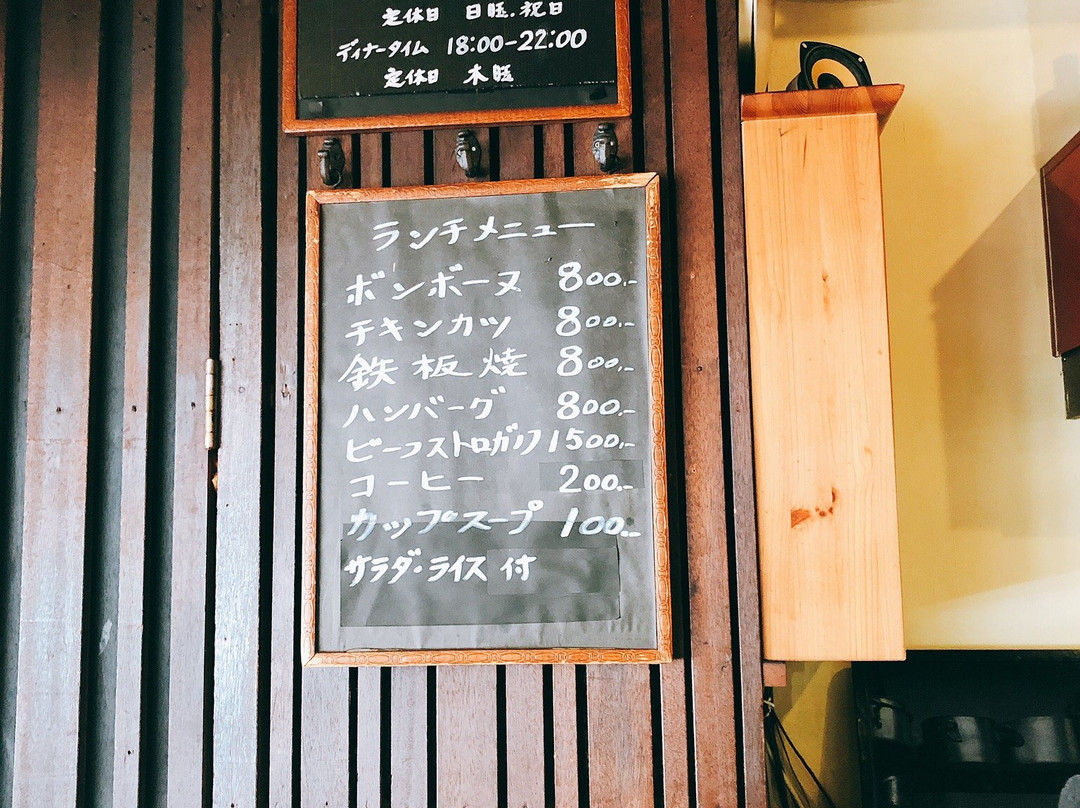 定休日 日曜.祝日
ディナータイム 18:00-22:00
定休日 木曜
ランチメニュー
ボンボーヌ 800.-
チキンカツ 800.-
鉄板焼 800.-
ハンバーグ 800.-
ビーフストロガノフ 1500.-
コーヒー 200.-
カップスープ 100.-
サラダ・ライス付